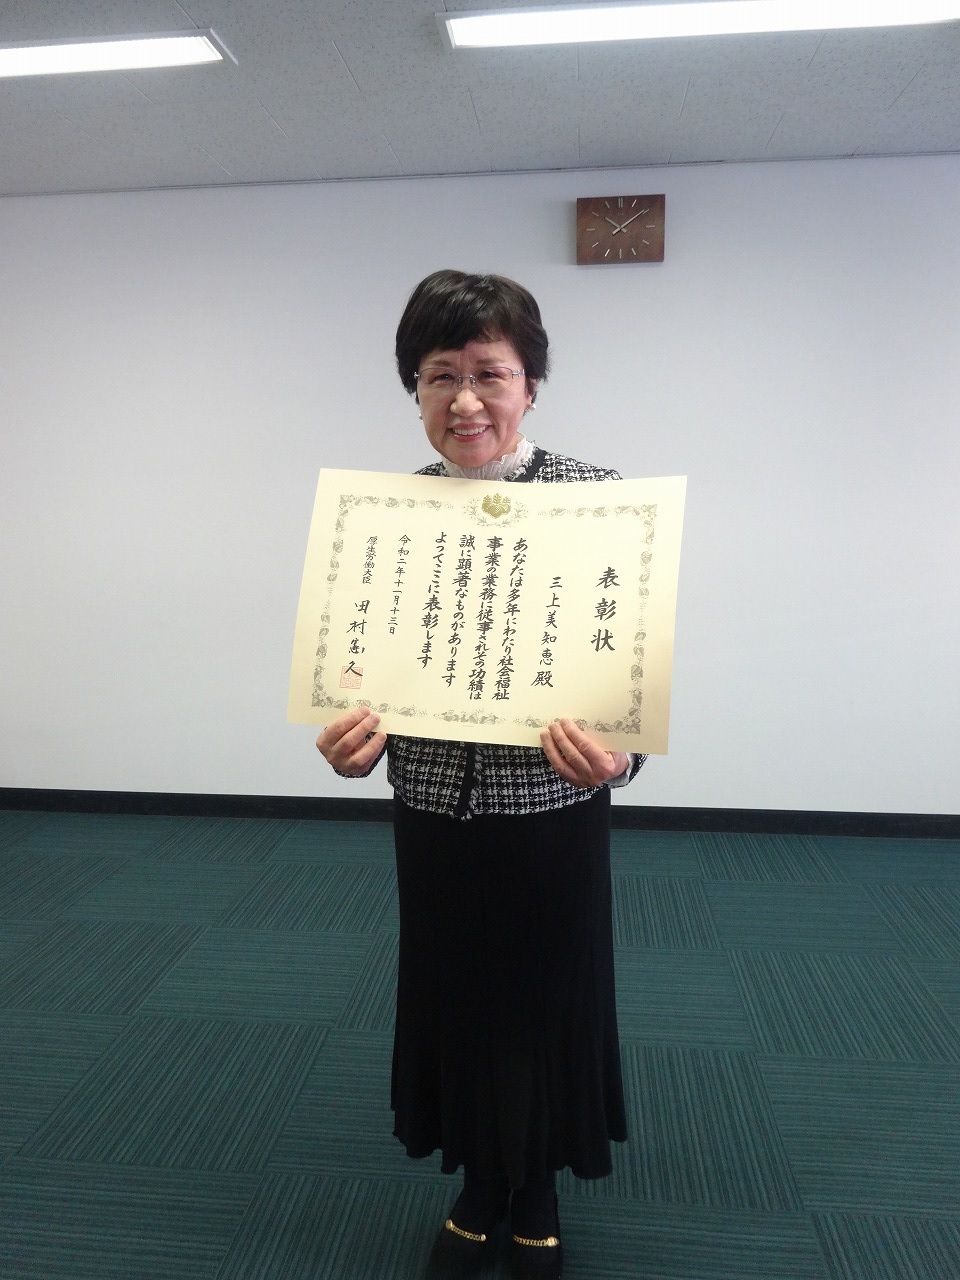 表彰状
三上美知恵殿
あなたは多年にわたり社会福祉
事業の業務に従事されその功績は
誠に顕著なものがあります
よってここに表彰します
令和二年十一月十三日
厚生労働大臣 田村憲久